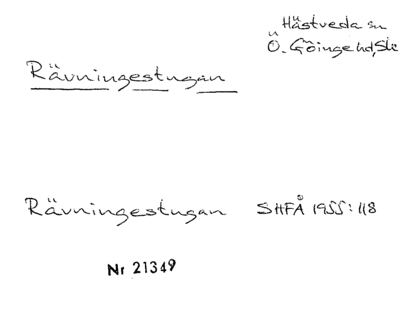 Hästveda sn
Ö. Göinge hd, Sk
Rävningestugan
Rävningestugan SHFÅ 1955:118
Nr 21349